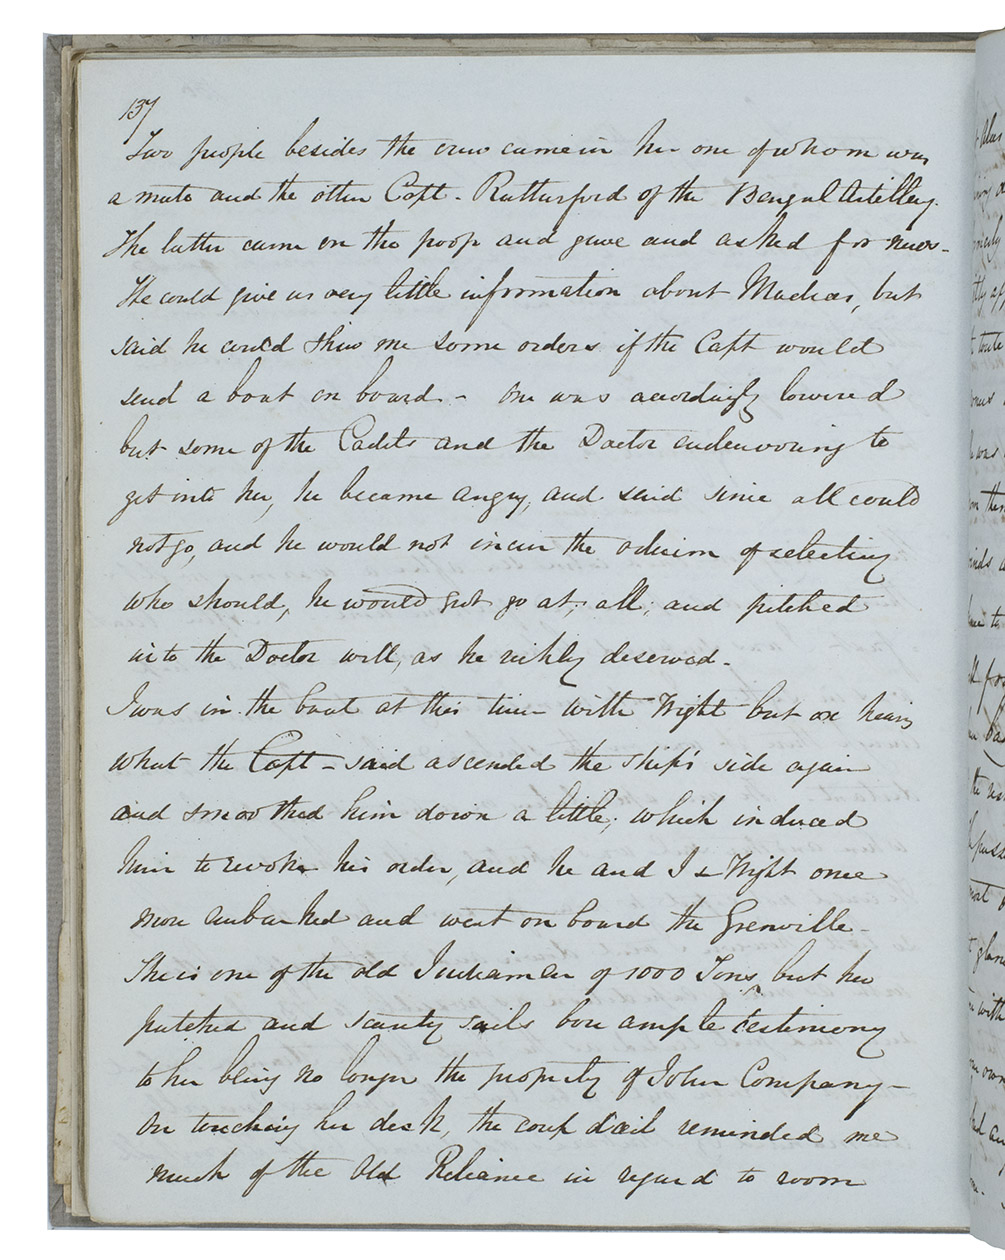 137
Two people besides the crew came in her one of whom was
a mate and the other Capt - Rutherford of the Bengal Artillery.
The latter came on the poop and gave and asked for news -
He could give us very little information about Madras, but
said he could shew me some orders if the Capt would
send a boat on board. - One was accordingly lowered
but some of the Cadets and the Doctor endeavouring to
get into her, he became angry, and said since all could
not go, and he would not incur the odium of selecting
who should, he would not go at, all; and pitched
into the Doctor well, as he richly deserved -
I was in the boat at this time with Wright but on hearing
what the Capt - said ascended the ship's side again
and smoothed him down a little; which induced
him to revoke his order, and he and I & Wright once
more embarked and went on board the Grenville -
She is one of the old Indiamen of 1000 Tons, but her
patched and scanty sails bore ample testimony
to her being no longer the property of John Company -
On touching her deck, the coup d'œil reminded me
much of the Old Reliance in regard to room